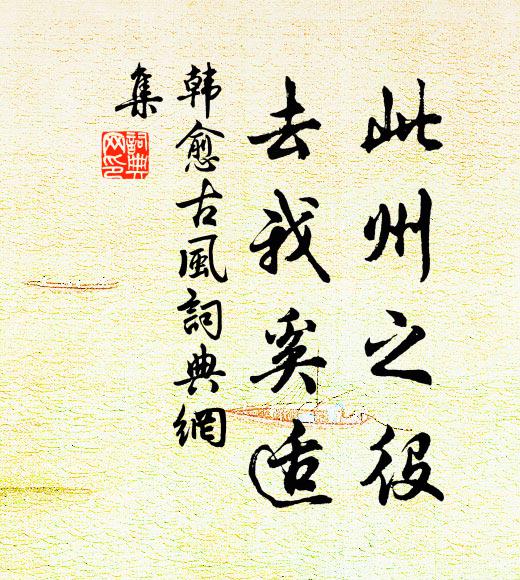 此州之役
去我奚适
韩愈古風詞典網
集
詞典
网印